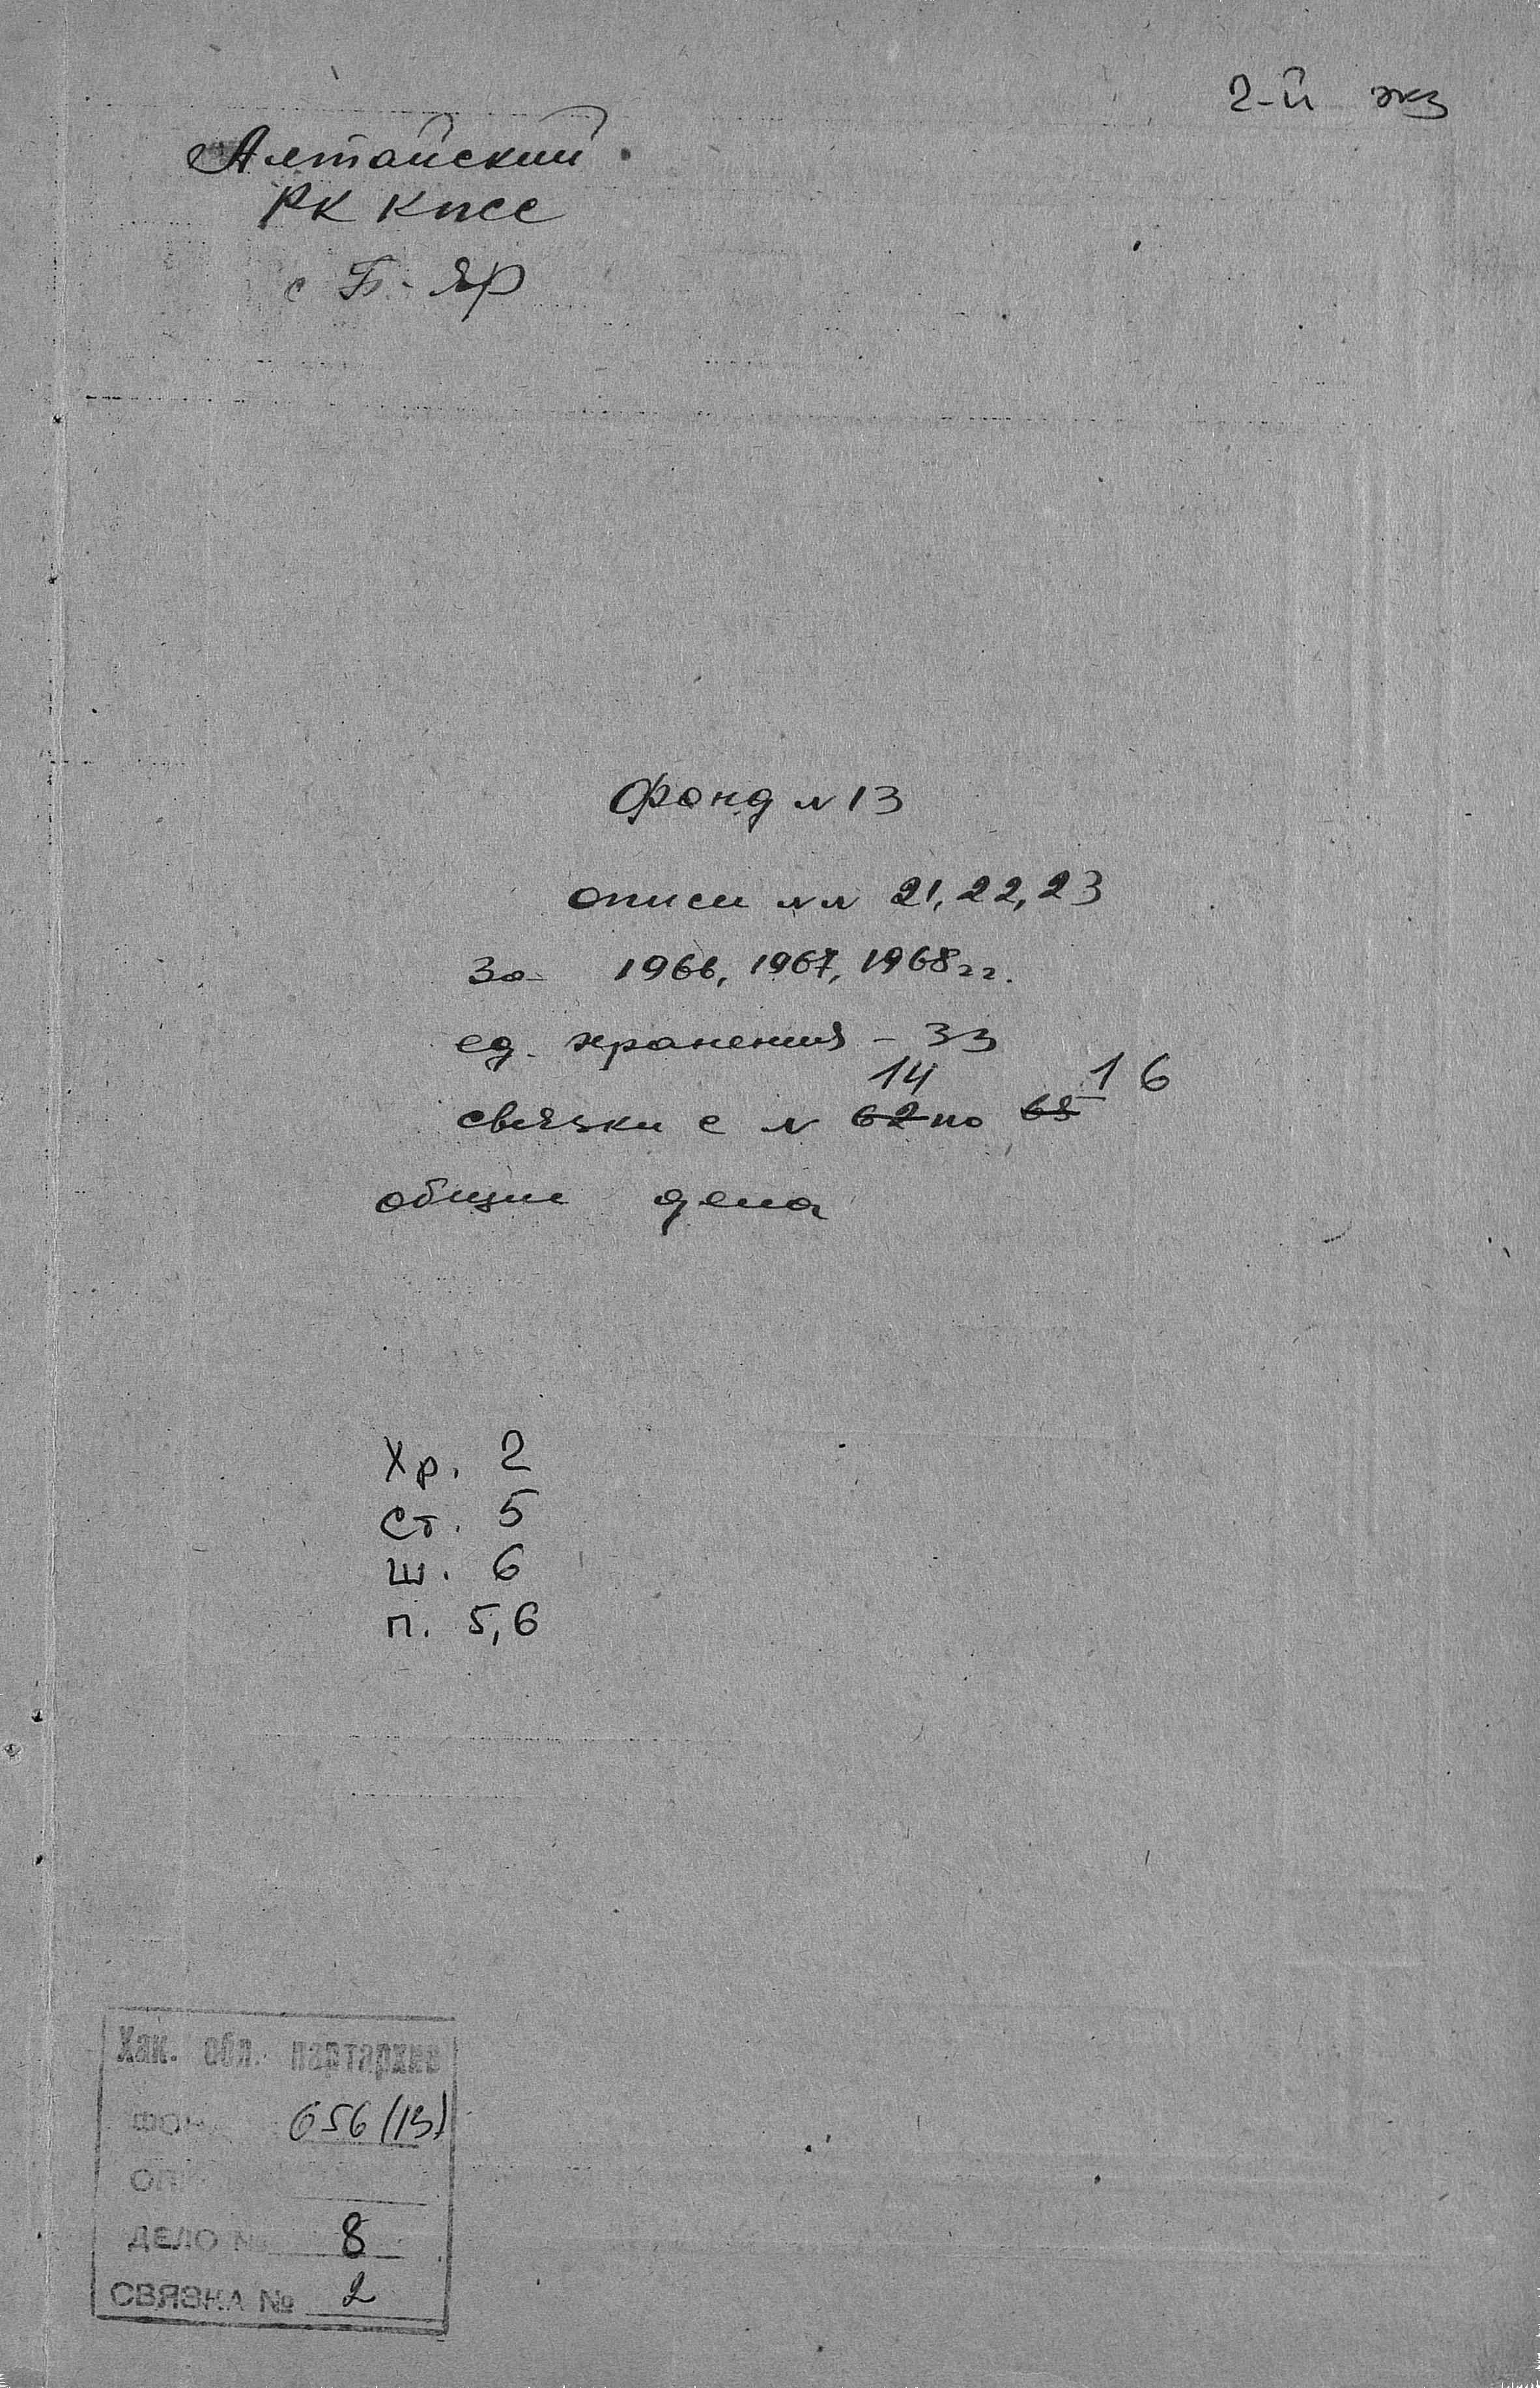 2-й экз
Алтайский
РК КПСС
с Б-Яр
Фонд N 13
описи NN 21, 22, 23
За 1966, 1967, 1968 гг.
ед. хранения - 33
14 16
связки с N 62 по 65
общие дела
Хр. 2
Ст. 5
Ш. 6
П. 5,6
Хак. обл. партархив
ФОН 656 (13)
ОП
ДЕЛО № 8
СВЯЗКА № 2